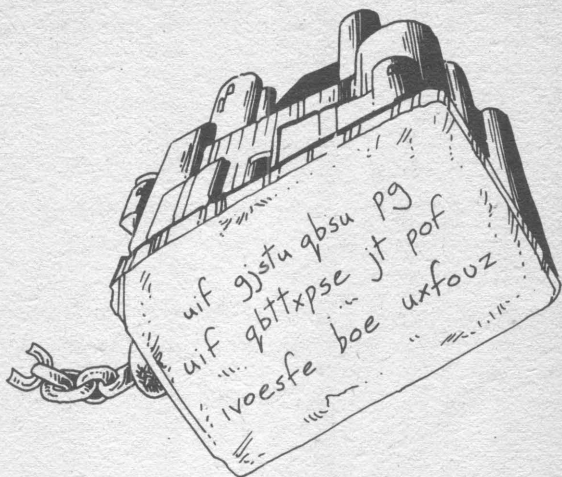 uif gjstu qbsu pg
uif qbttxpse jt pof
ivoesfe boe uxfouz